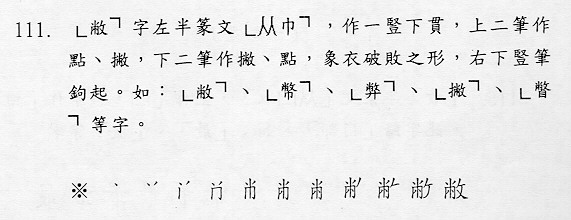 111. ﹂敝﹁字左半篆文﹂㡀﹁，作一豎下貫，上二筆作
點、撇，下二筆作撇、點，象衣破敗之形，右下豎筆
鉤起。如：﹂敝﹁、﹂幣﹁、﹂弊﹁、﹂撇﹁、﹂瞥
﹁等字。
※